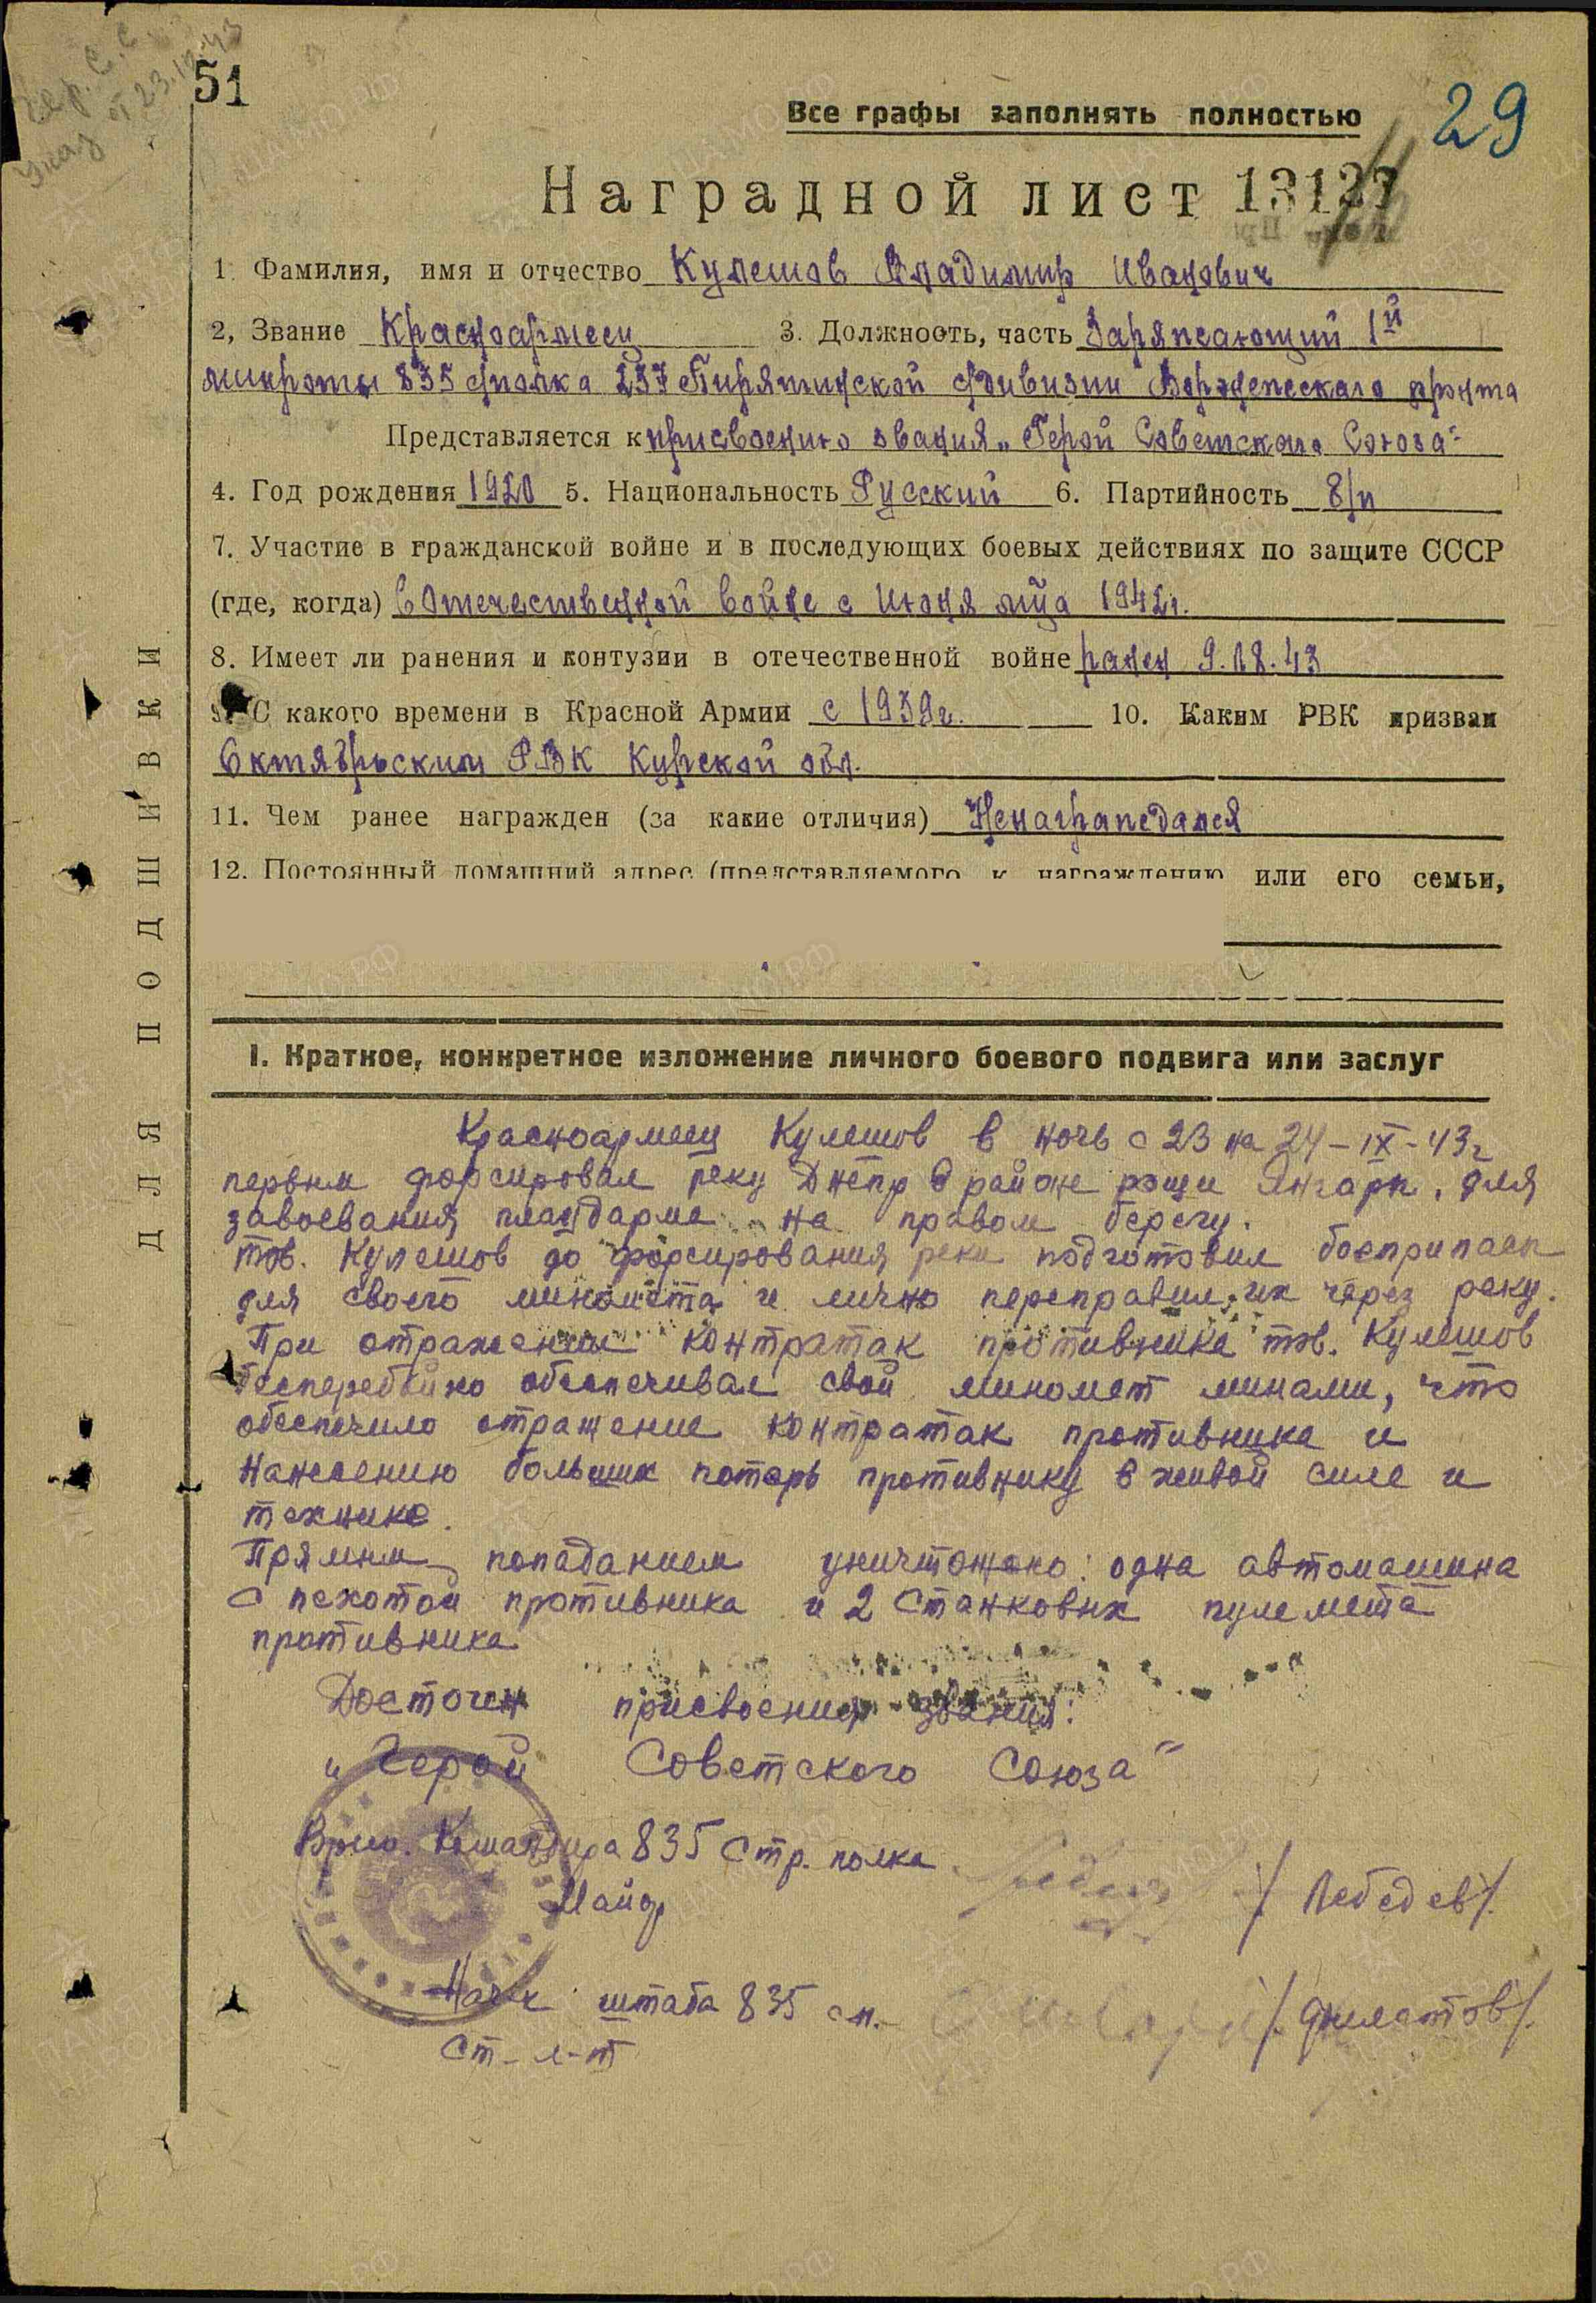 Гер. С. С.
Указ от 23.10.43
51
Все графы заполнять полностью
29
Наградной лист 13127
1. Фамилия, имя и отчество Кулешов Владимир Иванович
2, Звание Красноармеец 3. Должность, часть Заряжающий 1й
минроты 835 с/полка 237 Пирятинской с/дивизии Воронежского фронта
Представляется к присвоению звания „Герой Советского Союза"
4. Год рождения 1920 5. Национальность Русский 6. Партийность б/п
7. Участие в гражданской войне и в последующих боевых действиях по защите СССР
(где, когда) В Отечественной войне с Июня м-ца 1942г.
8. Имеет ли ранения и контузии в отечественной войне ранен 9.08.43
9. С какого времени в Красной Армии с 1939г. 10. Каким РВК призван
Октябрьским РВК Курской обл.
11. Чем ранее награжден (за какие отличия) Ненаграждался
12. Постоянный домашний адрес (представляемого к награждению или его семьи,
ДЛЯ ПОДШИВКИ
I. Краткое, конкретное изложение личного боевого подвига или заслуг
Красноармеец Кулешов в ночь с 23 на 24-IX-43г
первым форсировал реку Днепр в районе рощи для
завоевания плацдарма на правом берегу.
тов. Кулешов до форсирования реки подготовил боеприпасы
для своего миномета и лично переправил их через реку.
При отражении контратак противника тов. Кулешов
бесперебойно обеспечивал свой миномет минами, что
обеспечило отражение контратак противника и
нанесению больших потерь противнику в живой силе и
технике.
Прямым попаданием уничтожено: одна автомашина
с пехотой противника и 2 станковых пулемета
противника
Достоен присвоения звания:
„Герой Советского Союза"
Врио. Командира 835 Стр. полка
Майор /Лебедев/.
Нач-к штаба 835 сп.
Ст-л-т /Филатов/.